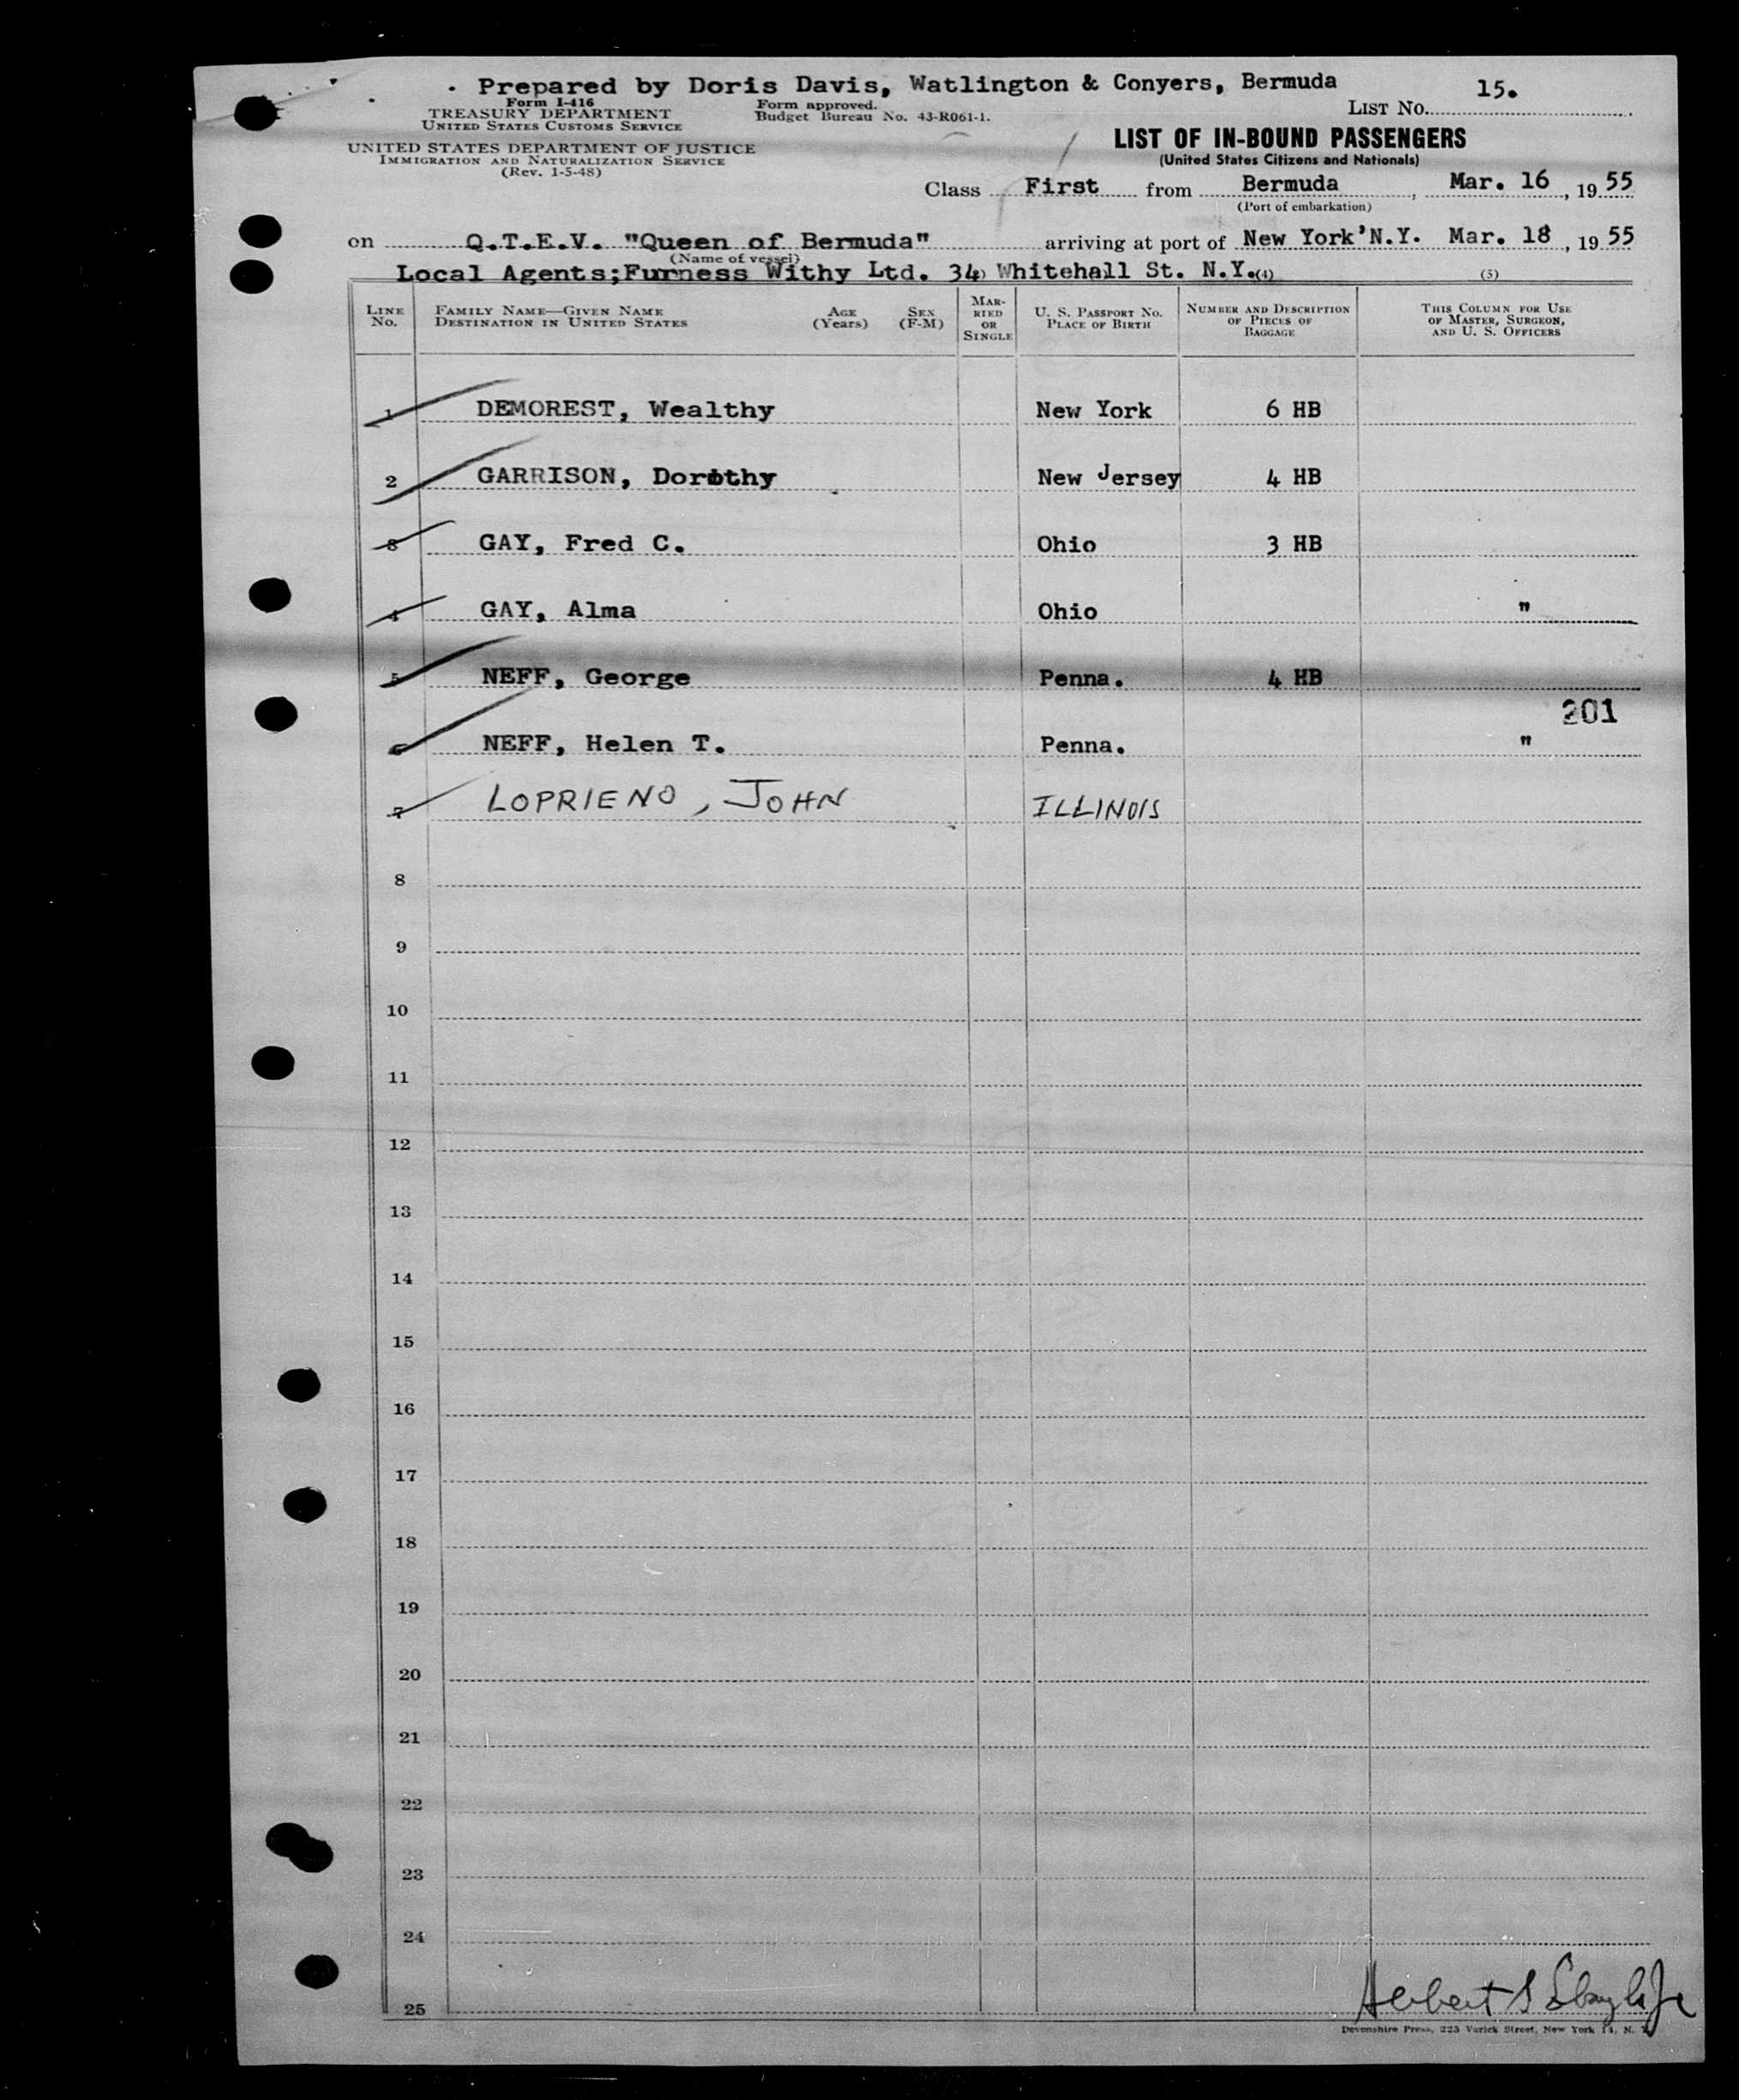 Prepared by Doris Davis, Watlington & Conyers, Bermuda
15.
Form I-416
TREASURY DEPARTMENT
UNITED STATES CUSTOMS SERVICE
Form approved.
Budget Bureau No. 43-R061-1.
LIST NO.
UNITED STATES DEPARTMENT OF JUSTICE
IMMIGRATION AND NATURALIZATION SERVICE
(Rev. 1-5-48)
LIST OF IN-BOUND PASSENGERS
(United States Citizens and Nationals)
Class First from Bermuda, Mar. 16, 19 55
(Port of embarkation)
on Q.T.E.V. "Queen of Bermuda" arriving at port of New York'N.Y. Mar. 18, 19 55
(Name of vessel)
Local Agents;Furness Withy Ltd. 34 Whitehall St. N.Y. (4) (5)
LINE No. FAMILY NAME—GIVEN NAME DESTINATION IN UNITED STATES AGE (Years) SEX (F-M) MARRIED OR SINGLE U. S. PASSPORT NO. PLACE OF BIRTH NUMBER AND DESCRIPTION OF PIECES OF BAGGAGE THIS COLUMN FOR USE OF MASTER, SURGEON, AND U. S. OFFICERS
1 DEMOREST, Wealthy New York 6 HB
2 GARRISON, Dorothy New Jersey 4 HB
3 GAY, Fred C. Ohio 3 HB
4 GAY, Alma Ohio "
5 NEFF, George Penna. 4 HB
201
6 NEFF, Helen T. Penna. "
7 LOPRIENO, JOHN ILLINOIS
8
9
10
11
12
13
14
15
16
17
18
19
20
21
22
23
24
25
Herbert S
Devonshire Press, 225 Varick Street, New York 14, N. Y.